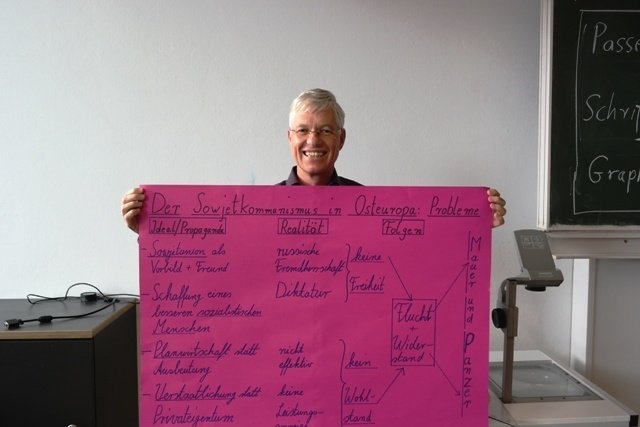 Der Sowjetkommunismus in Osteuropa: Probleme
Ideal/Propaganda
Realität
Folgen
- Sowjetunion als
Vorbild + Freund
russische
Fremdherrschaft
- Schaffung eines
besseren sozialistischen
Menschen
Diktatur
keine
Freiheit
- Planwirtschaft statt
Ausbeutung
nicht
effektiv
- Verstaatlichung statt
Privateigentum
keine
Leistungs-
kein
Wohl-
stand
Flucht
+
Wider-
stand
Mauer und Panzer
Passe
Schrif
Graph